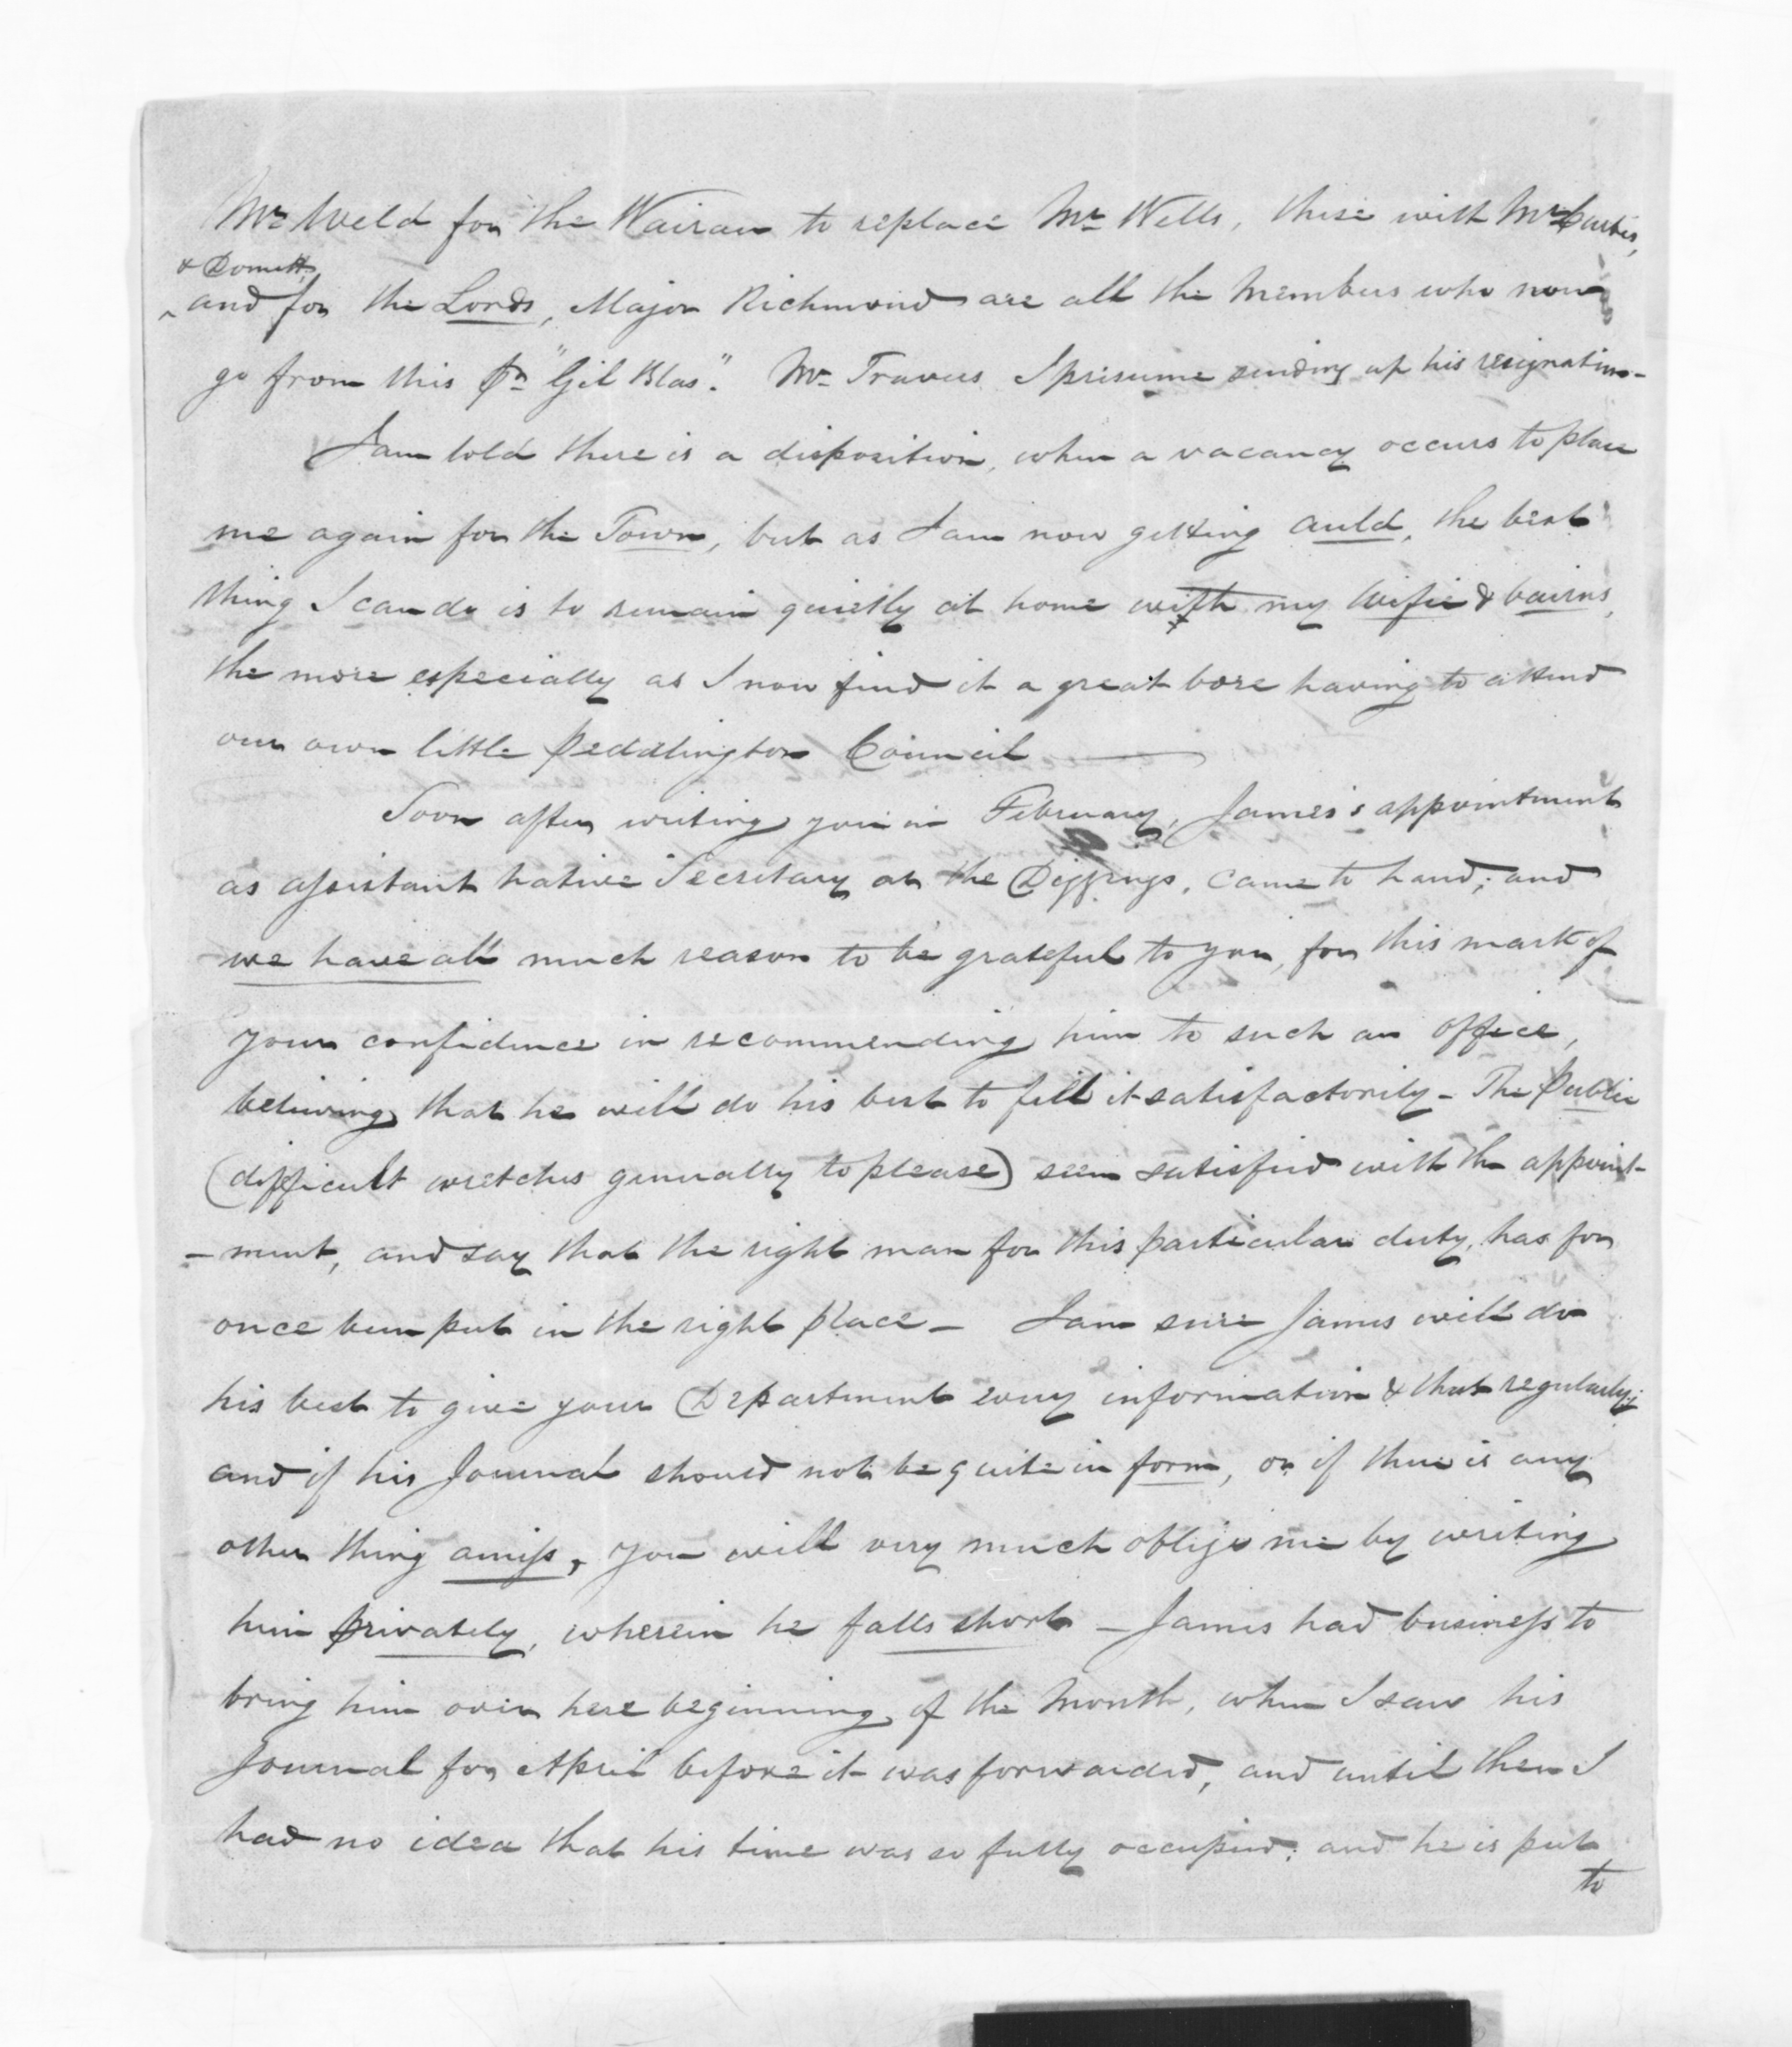 Mr Weld for the Wairau to replace Mr Wells, these with Mr Curtis,
& Domett,
and for the Lords, Major Richmond are all the Members who now
go from this pr "Gil Blas". Mr Travers I presume sending up his resignation -
I am told there is a disposition, when a vacancy occurs to place
me again for the Town, but as I am now getting auld, the best
thing I can do is to remain quietly at home with my wifie & bairns,
the more especially as I now find it a great bore having to attend
our own little Peddlington Council —
Soon after writing you in February, James's appointment
as assistant native Secretary at the Diggings, came to hand; and
we have all much reason to be grateful to you, for this mark of
your confidence in recommending him to such an office,
believing that he will do his best to fill it satisfactorily - The Public
(difficult wretches generally to please) seem satisfied with the appoint-
-ment, and say that the right man for this particular duty, has for
once been put in the right place - I am sure James will do
his best to give your Department every information & that regularly;
and if his Journal should not be quite in form, or if there is any
other thing amiss, you will very much oblige me by writing
him privately, wherein he falls short - James had business to
bring him over here beginning of the Month, when I saw his
Journal for April before it was forwarded, and until then I
had no idea that his time was so fully occupied; and he is put
to